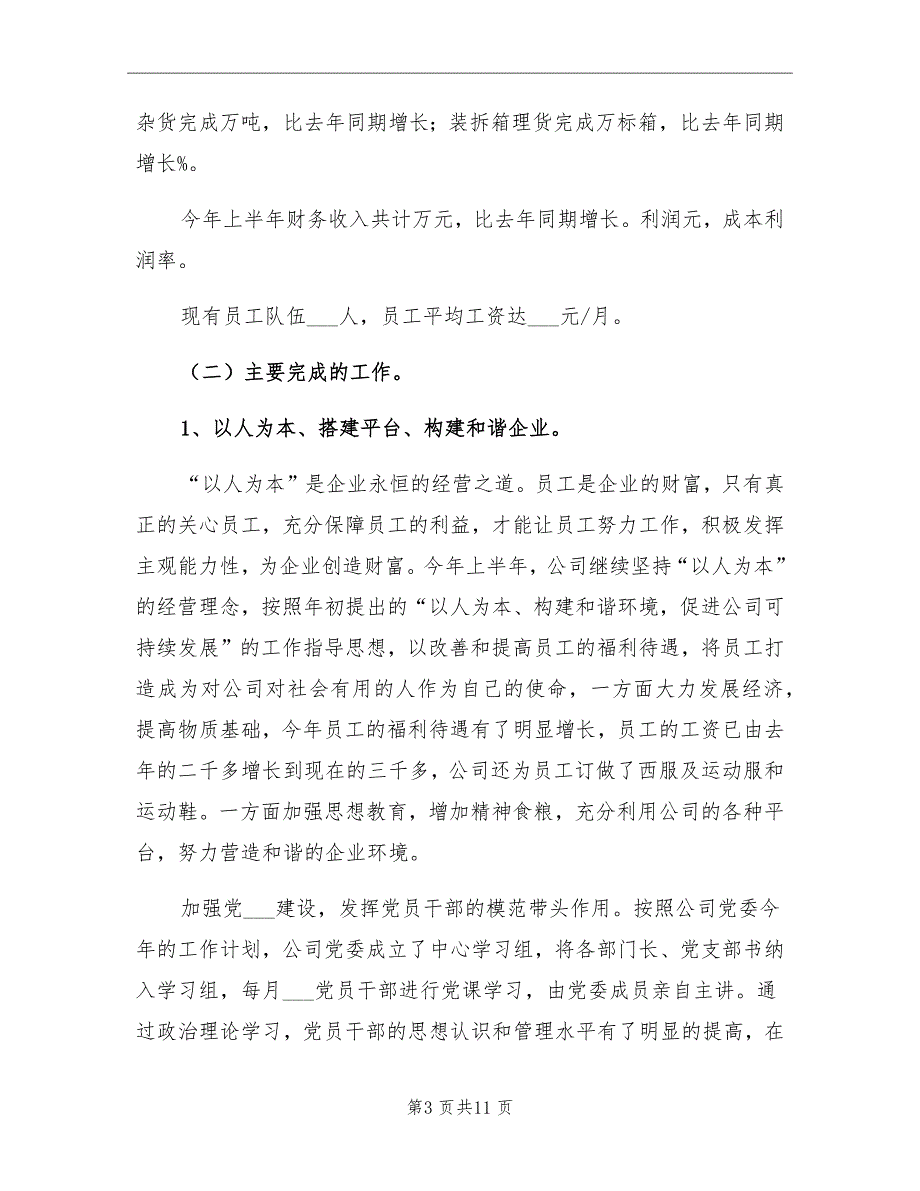 杂货完成万吨，比去年同期增长；装拆箱理货完成万标箱，比去年同期
增长%。
今年上半年财务收入共计万元，比去年同期增长。利润元，成本利
润率。
现有员工队伍___人，员工平均工资达___元/月。
（二）主要完成的工作。
1、以人为本、搭建平台、构建和谐企业。
“以人为本”是企业永恒的经营之道。员工是企业的财富，只有真
正的关心员工，充分保障员工的利益，才能让员工努力工作，积极发挥
主观能力性，为企业创造财富。今年上半年，公司继续坚持“以人为本”
的经营理念，按照年初提出的“以人为本、构建和谐环境，促进公司可
持续发展”的工作指导思想，以改善和提高员工的福利待遇，将员工打
造成为对公司对社会有用的人作为自己的使命，一方面大力发展经济，
提高物质基础，今年员工的福利待遇有了明显增长，员工的工资已由去
年的二千多增长到现在的三千多，公司还为员工订做了西服及运动服和
运动鞋。一方面加强思想教育，增加精神食粮，充分利用公司的各种平
台，努力营造和谐的企业环境。
加强党___建设，发挥党员干部的模范带头作用。按照公司党委今
年的工作计划，公司党委成立了中心学习组，将各部门长、党支部书纳
入学习组，每月___党员干部进行党课学习，由党委成员亲自主讲。通
过政治理论学习，党员干部的思想认识和管理水平有了明显的提高，在
第3 页共11 页